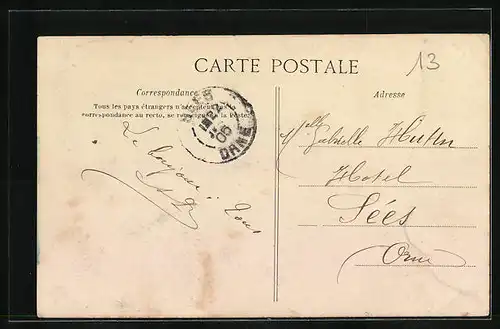 13
CARTE POSTALE
Correspondance
Tous les pays étrangers n'acceptent
correspondance au recto, se renseigner à la Poste
Le bonjour à tous
Adresse
Mlle Gabrielle
Hotel
Sées
Orne
ORNE
05